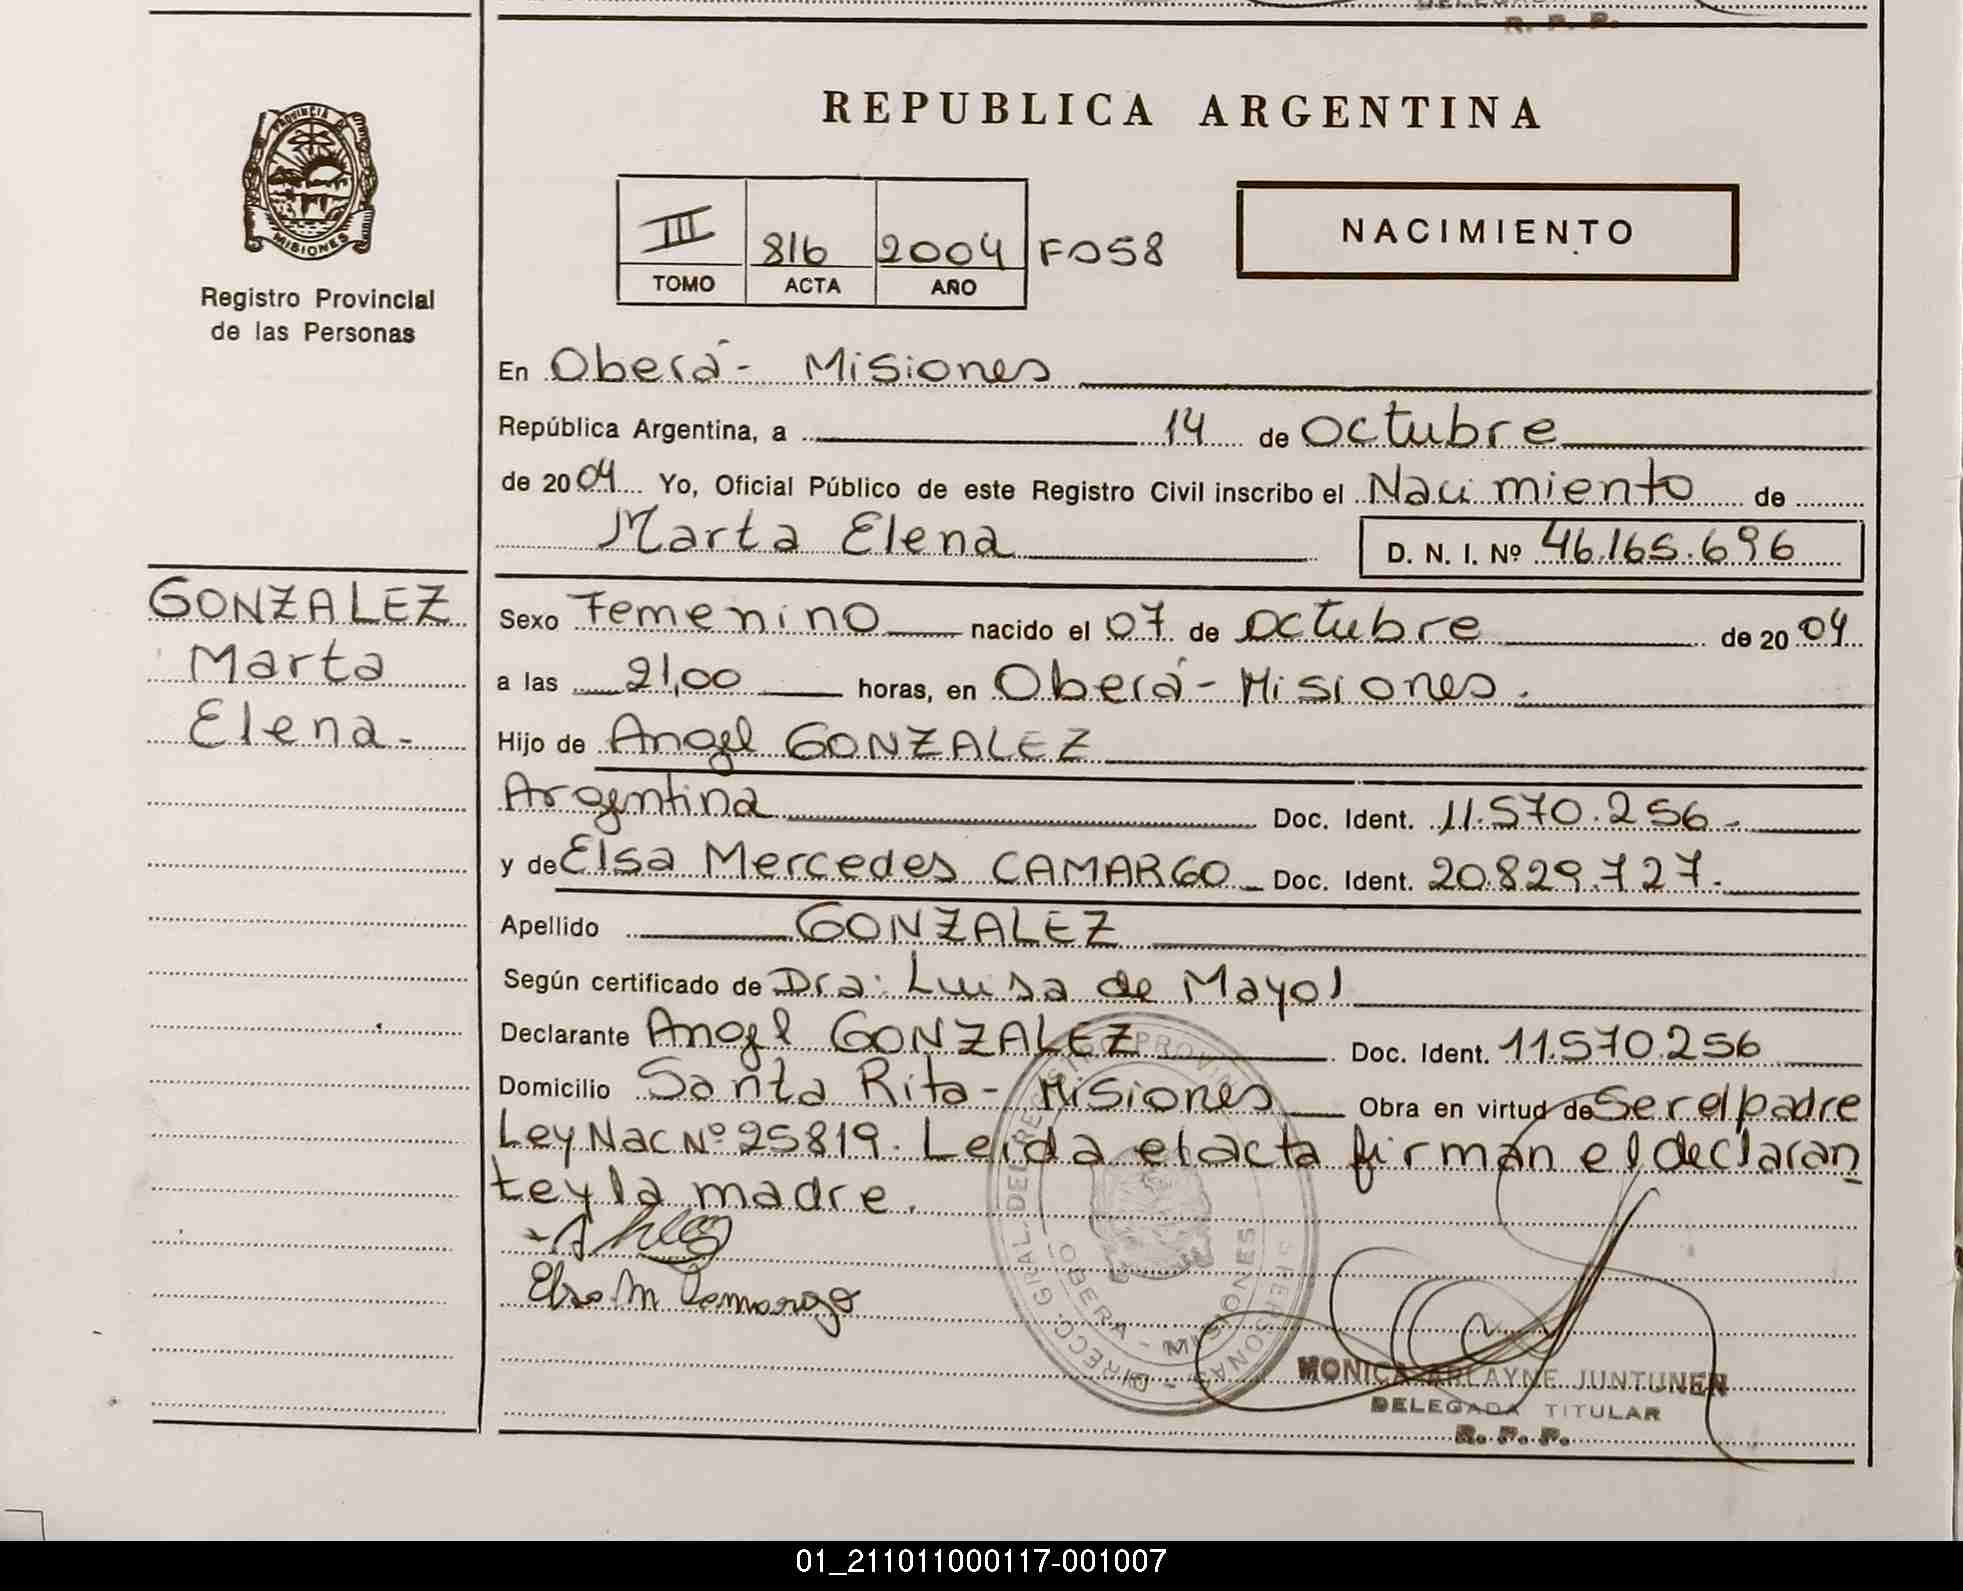 DELEGADA
R. P. P.
REPUBLICA ARGENTINA
PROVINCIA DE
MISIONES
III 816 2004 F058
TOMO ACTA AÑO
NACIMIENTO
Registro Provincial
de las Personas
En Oberá - Misiones
República Argentina, a 14 de Octubre
de 2004 Yo, Oficial Público de este Registro Civil inscribo el Nacimiento de
Marta Elena D. N. I. Nº 46.165.696
GONZALEZ
Marta
Elena-
Sexo Femenino nacido el 07 de Octubre de 2004
a las 21,00 horas, en Oberá - Misiones.
Hijo de Angel GONZALEZ
Argentina Doc. Ident. 11.570.256-
y de Elsa Mercedes CAMARGO Doc. Ident. 20.829.727.
Apellido GONZALEZ
Según certificado de Dra: Luisa de Mayol
Declarante Angel GONZALEZ Doc. Ident. 11.570.256
Domicilio Santa Rita - Misiones Obra en virtud de Ser el padre
Ley Nac Nº 25819. Leida el acta firman el declaran
te y la madre.
Elsa M Camargo
DIRECC. GRAL. DEL REGISTRO PROVIN PERSONAS
OBERA - MISIONES
MONICA ARLAYNE JUNTUNEN
DELEGADA TITULAR
R. P. P.
01_211011000117-001007